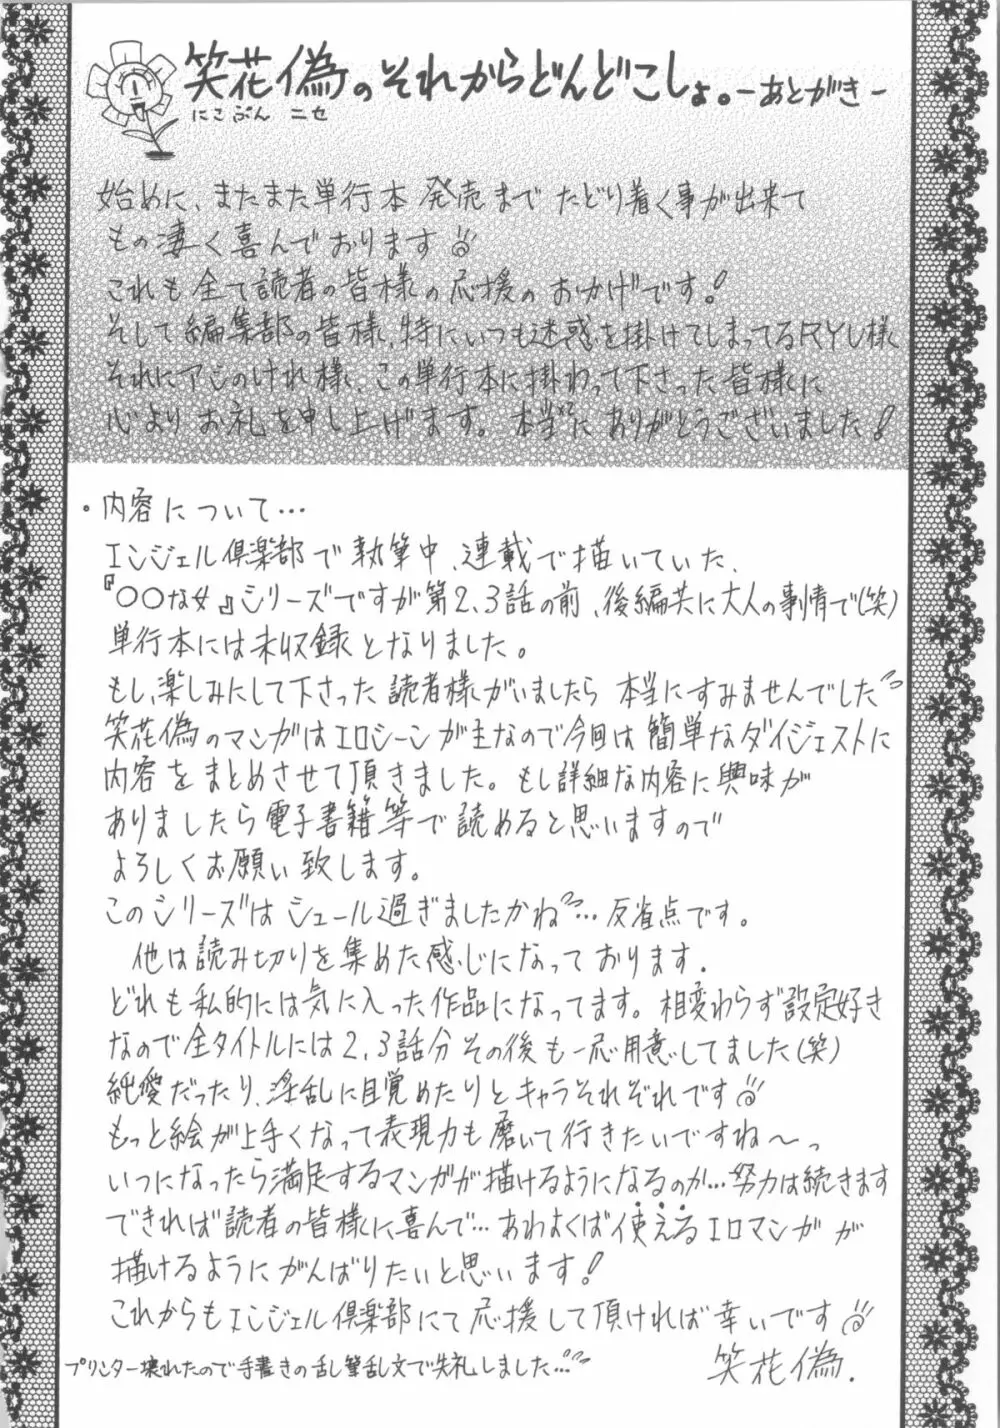 笑花偽のそれからどんどこしょ。-あとがき-
にこぷん ニセ
始めに、またまた単行本発売までたどり着く事が出来て
もの凄く喜んでおります
これも全て読者の皆様の応援のおかげです!
そして編集部の皆様、特にいつも迷惑を掛けてしまってるRYU様
それにアシのけれ様、この単行本に掛わって下さった皆様に
心よりお礼を申し上げます。本当にありがとうございました!
。内容について…
エンジェル倶楽部で執筆中、連載で描いていた、
『○○な女』シリーズですが第2、3話の前、後編共に大人の事情で(笑)
単行本には未収録となりました。
もし、楽しみにして下さった読者様がいましたら本当にすみませんでした
笑花偽のマンガはエロシーンが主なので今回は簡単なダイジェストに
内容をまとめさせて頂きました。もし詳細な内容に興味が
ありましたら電子書籍等で読めると思いますので
よろしくお願い致します。
このシリーズはシュール過ぎましたかね…反省点です。
他は読み切りを集めた感じになっております。
どれも私的には気に入った作品になってます。相変わらず設定好き
なので全タイトルには2、3話分その後も一応用意してました(笑)
純愛だったり、淫乱に目覚めたりとキャラそれぞれです
もっと絵が上手くなって表現力も磨いて行きたいですね~っ
いつになったら満足するマンガが描けるようになるのか…努力は続きます
できれば読者の皆様に喜んで…あわよくば使えるエロマンガが
描けるようにがんばりたいと思います!
これからもエンジェル倶楽部にて応援して頂ければ幸いです
プリンター壊れたので手書きの乱筆乱文で失礼しました…
笑花偽.